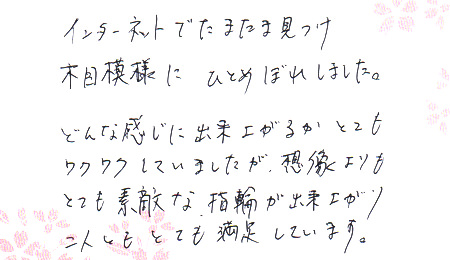 インターネットでたまたま見つけ
木目模様に ひとめぼれしました。
どんな感じに出来上がるかとても
ワクワクしていましたが、想像よりも
とても素敵な、指輪が出来上がり
二人ともとても満足しています。